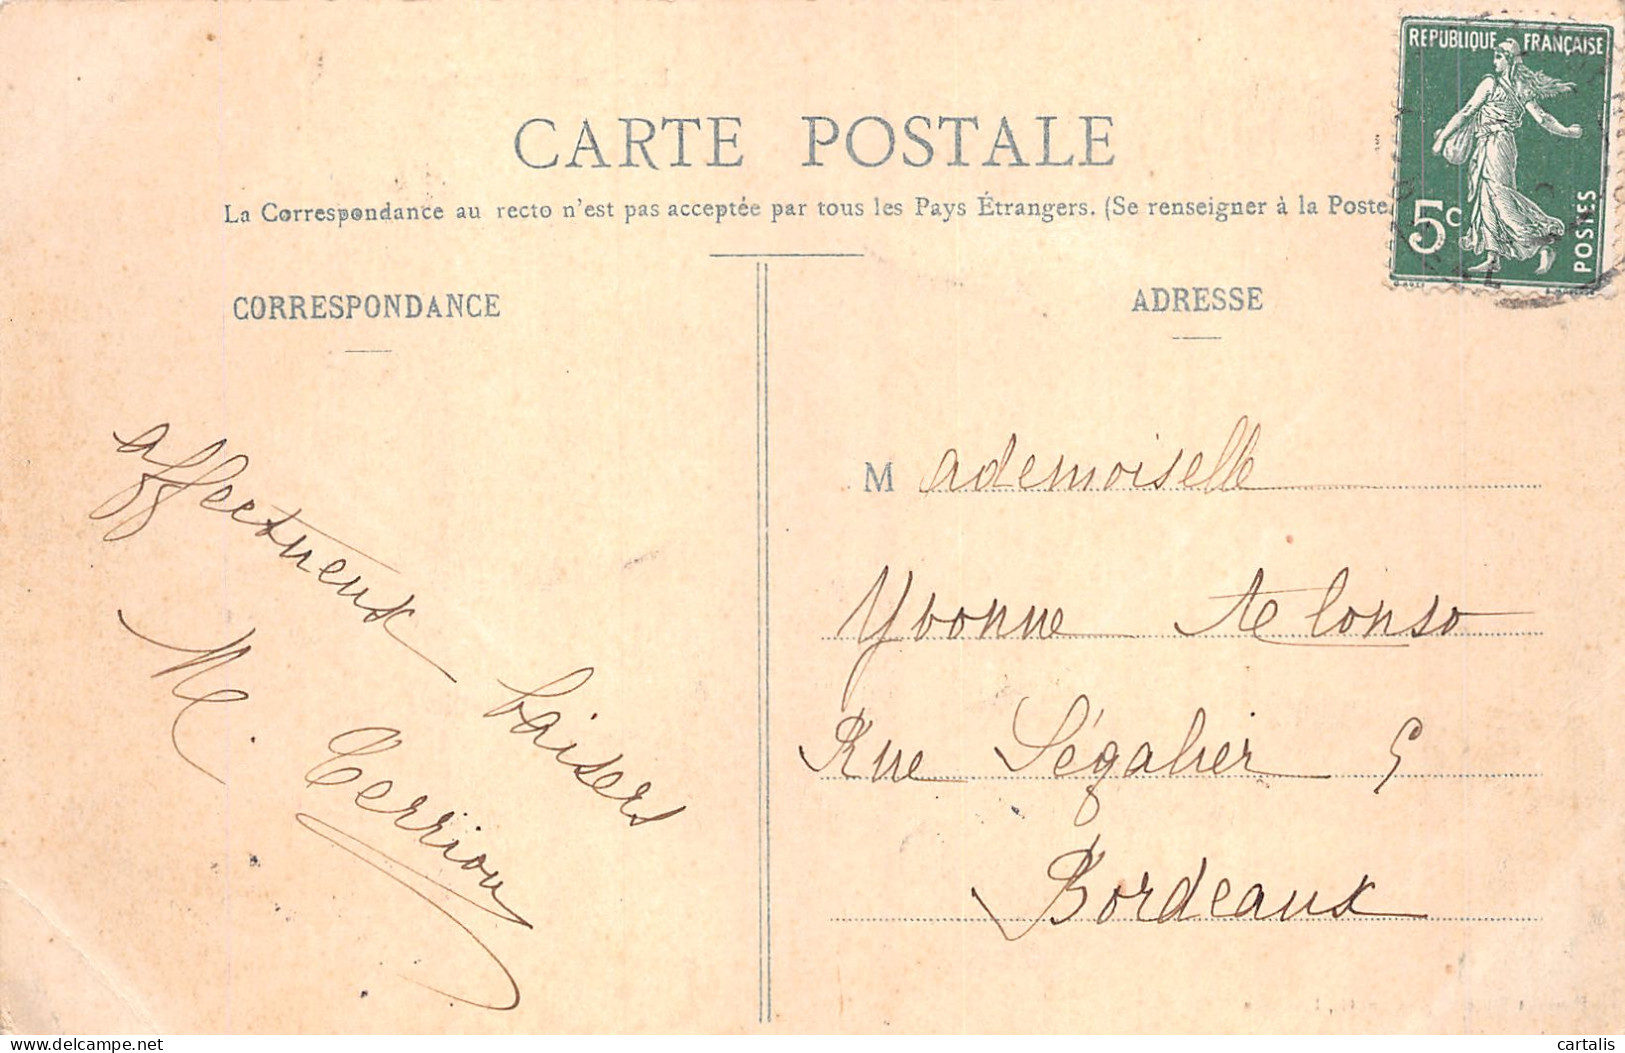 CARTE POSTALE
La Correspondance au recto n'est pas acceptée par tous les Pays Étrangers. (Se renseigner à la Poste
REPUBLIQUE FRANÇAISE
5c
POSTES
CORRESPONDANCE
ADRESSE
affectueux baisers
M.
Mademoiselle
Yvonne Alonso
Rue Ségalier 5
Bordeaux
delcampe.net
cartalis